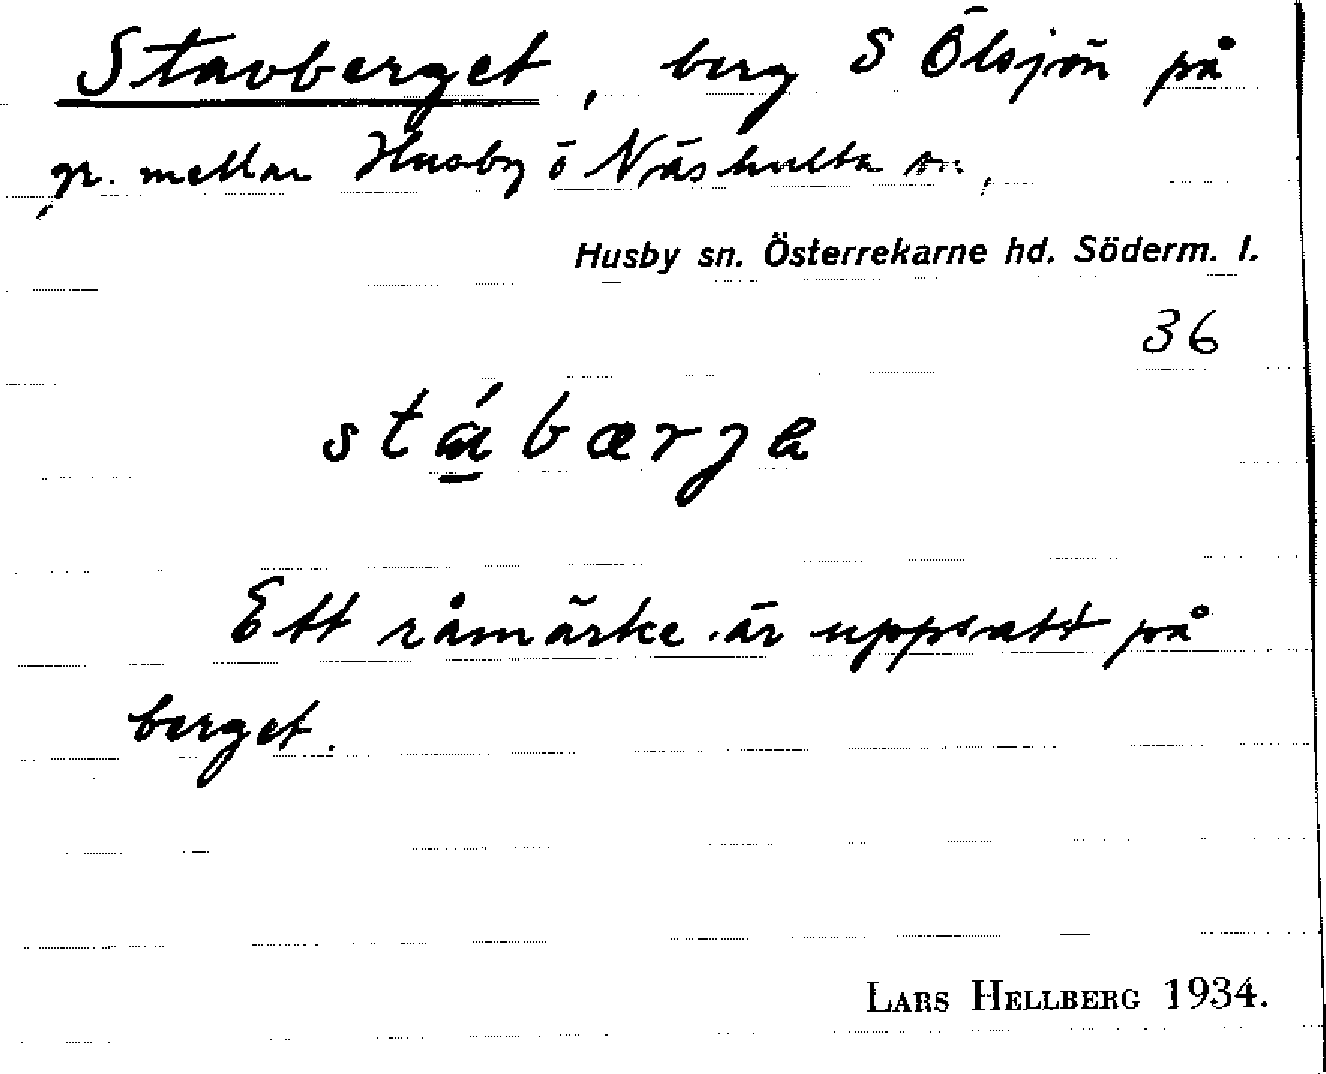 Stavberget, berg S Ölsjön på
gr. mellan Husby o Näshulta sn,
Husby sn. Österrekarne hd. Söderm. l.
36
stábærjə
Ett råmärke är uppsatt på
berget.
LARS HELLBERG 1934.